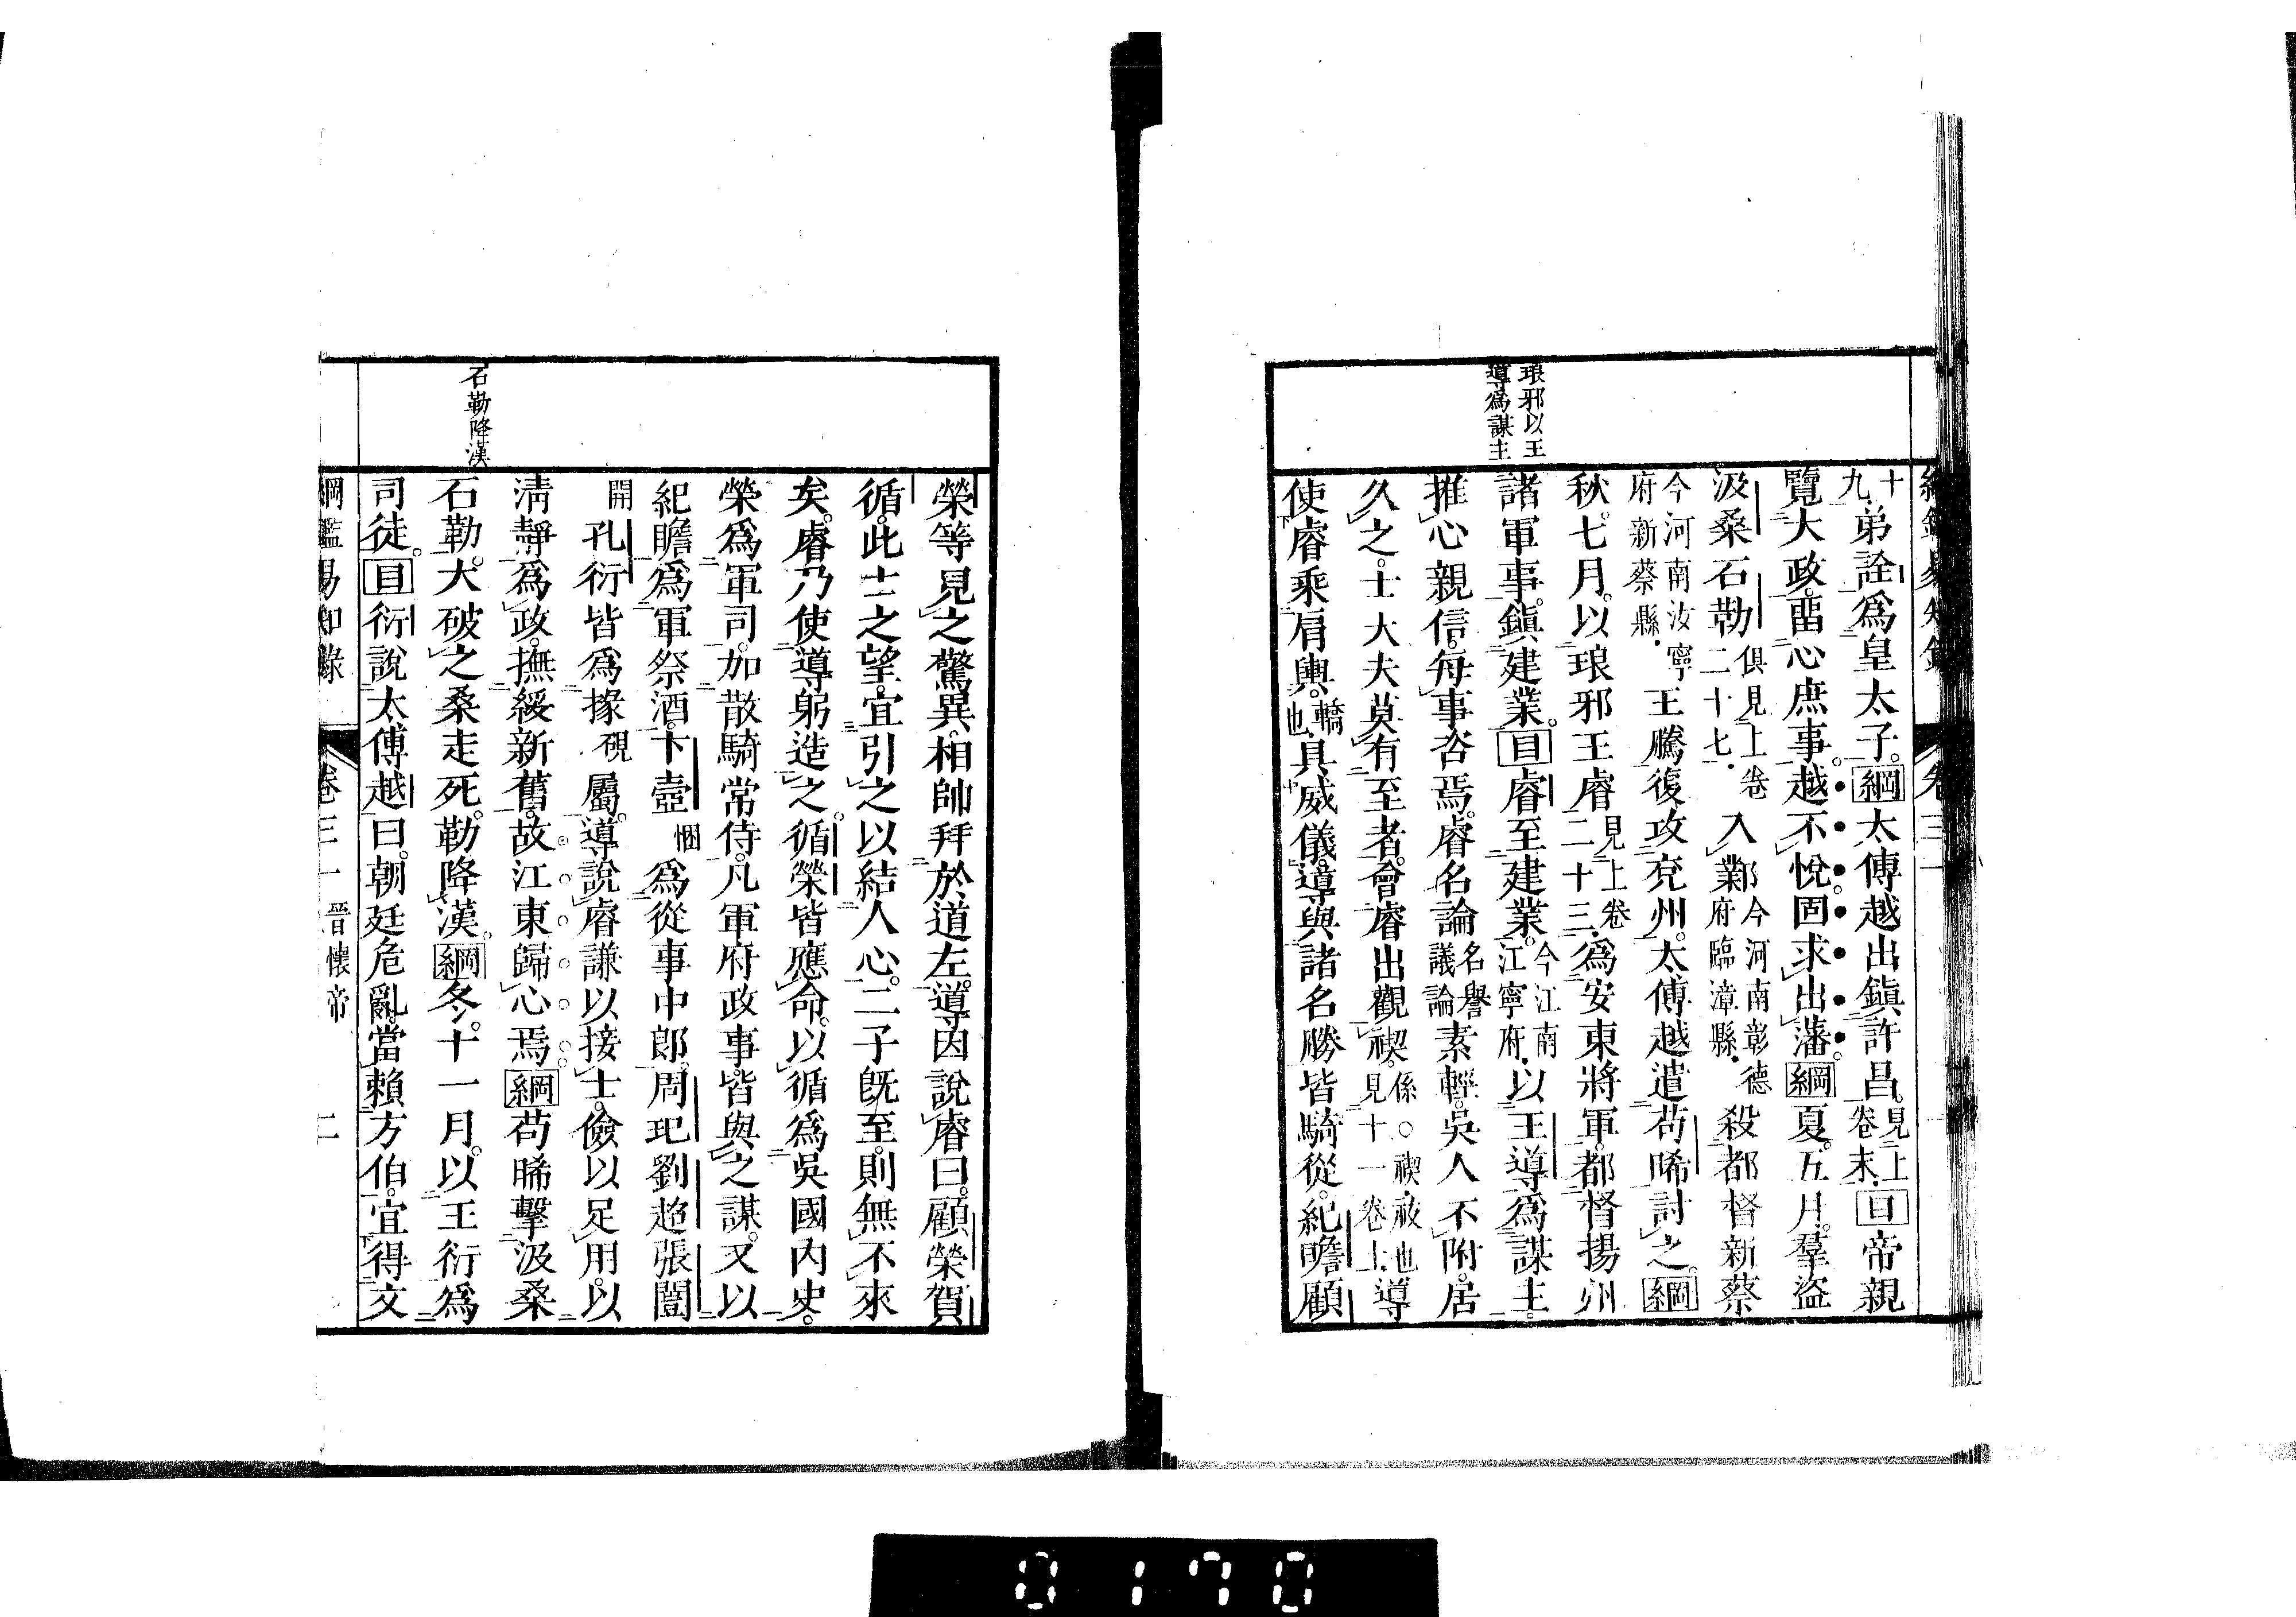 綱鑑易知錄 卷三一
琅邪以王
導爲謀主
十九弟詮爲皇太子。綱太傅越出鎭許昌。見上卷末。目帝親
覽大政。畱心庶事。越不悅。固求出藩。綱夏。五月。羣盜
汲桑石勒俱見上卷二十七。入鄴今河南彰德府臨漳縣。殺都督新蔡
今河南汝寧府新蔡縣。王騰復攻兗州。太傅越遣苟晞討之。綱
秋。七月。以琅邪王睿見上卷二十三。爲安東將軍。都督揚州
諸軍事。鎭建業。目睿至建業。今江南江寧府。以王導爲謀主。
推心親信。每事咨焉。睿名論名譽議論素輕。吳人不附。居
久之。士大夫莫有至者。會睿出觀禊。係○禊祓也見十一卷上。導
使睿乘肩輿。轎也具威儀。導與諸名勝皆騎從。紀瞻顧
榮等見之驚異。相帥拜於道左。導因說睿曰。顧榮賀
循。此土之望。宜引之以結人心。二子旣至。則無不來
矣。睿乃使導躬造之。循榮皆應命。以循爲吳國內史。
榮爲軍司。加散騎常侍。凡軍府政事。皆與之謀。又以
紀瞻爲軍祭酒。卞壼悃爲從事中郎。周玘劉超張闓
開孔衍皆爲掾硯屬。導說睿謙以接士。儉以足用。以
淸靜爲政。撫綏新舊。故江東歸心焉。綱苟晞擊汲桑
石勒。大破之桑走死。勒降漢。綱冬。十一月。以王衍爲
司徒。目衍說太傅越曰。朝廷危亂。當賴方伯。宜得文
石勒降漢
綱鑑易知錄 卷三一 晉懷帝 二
0170